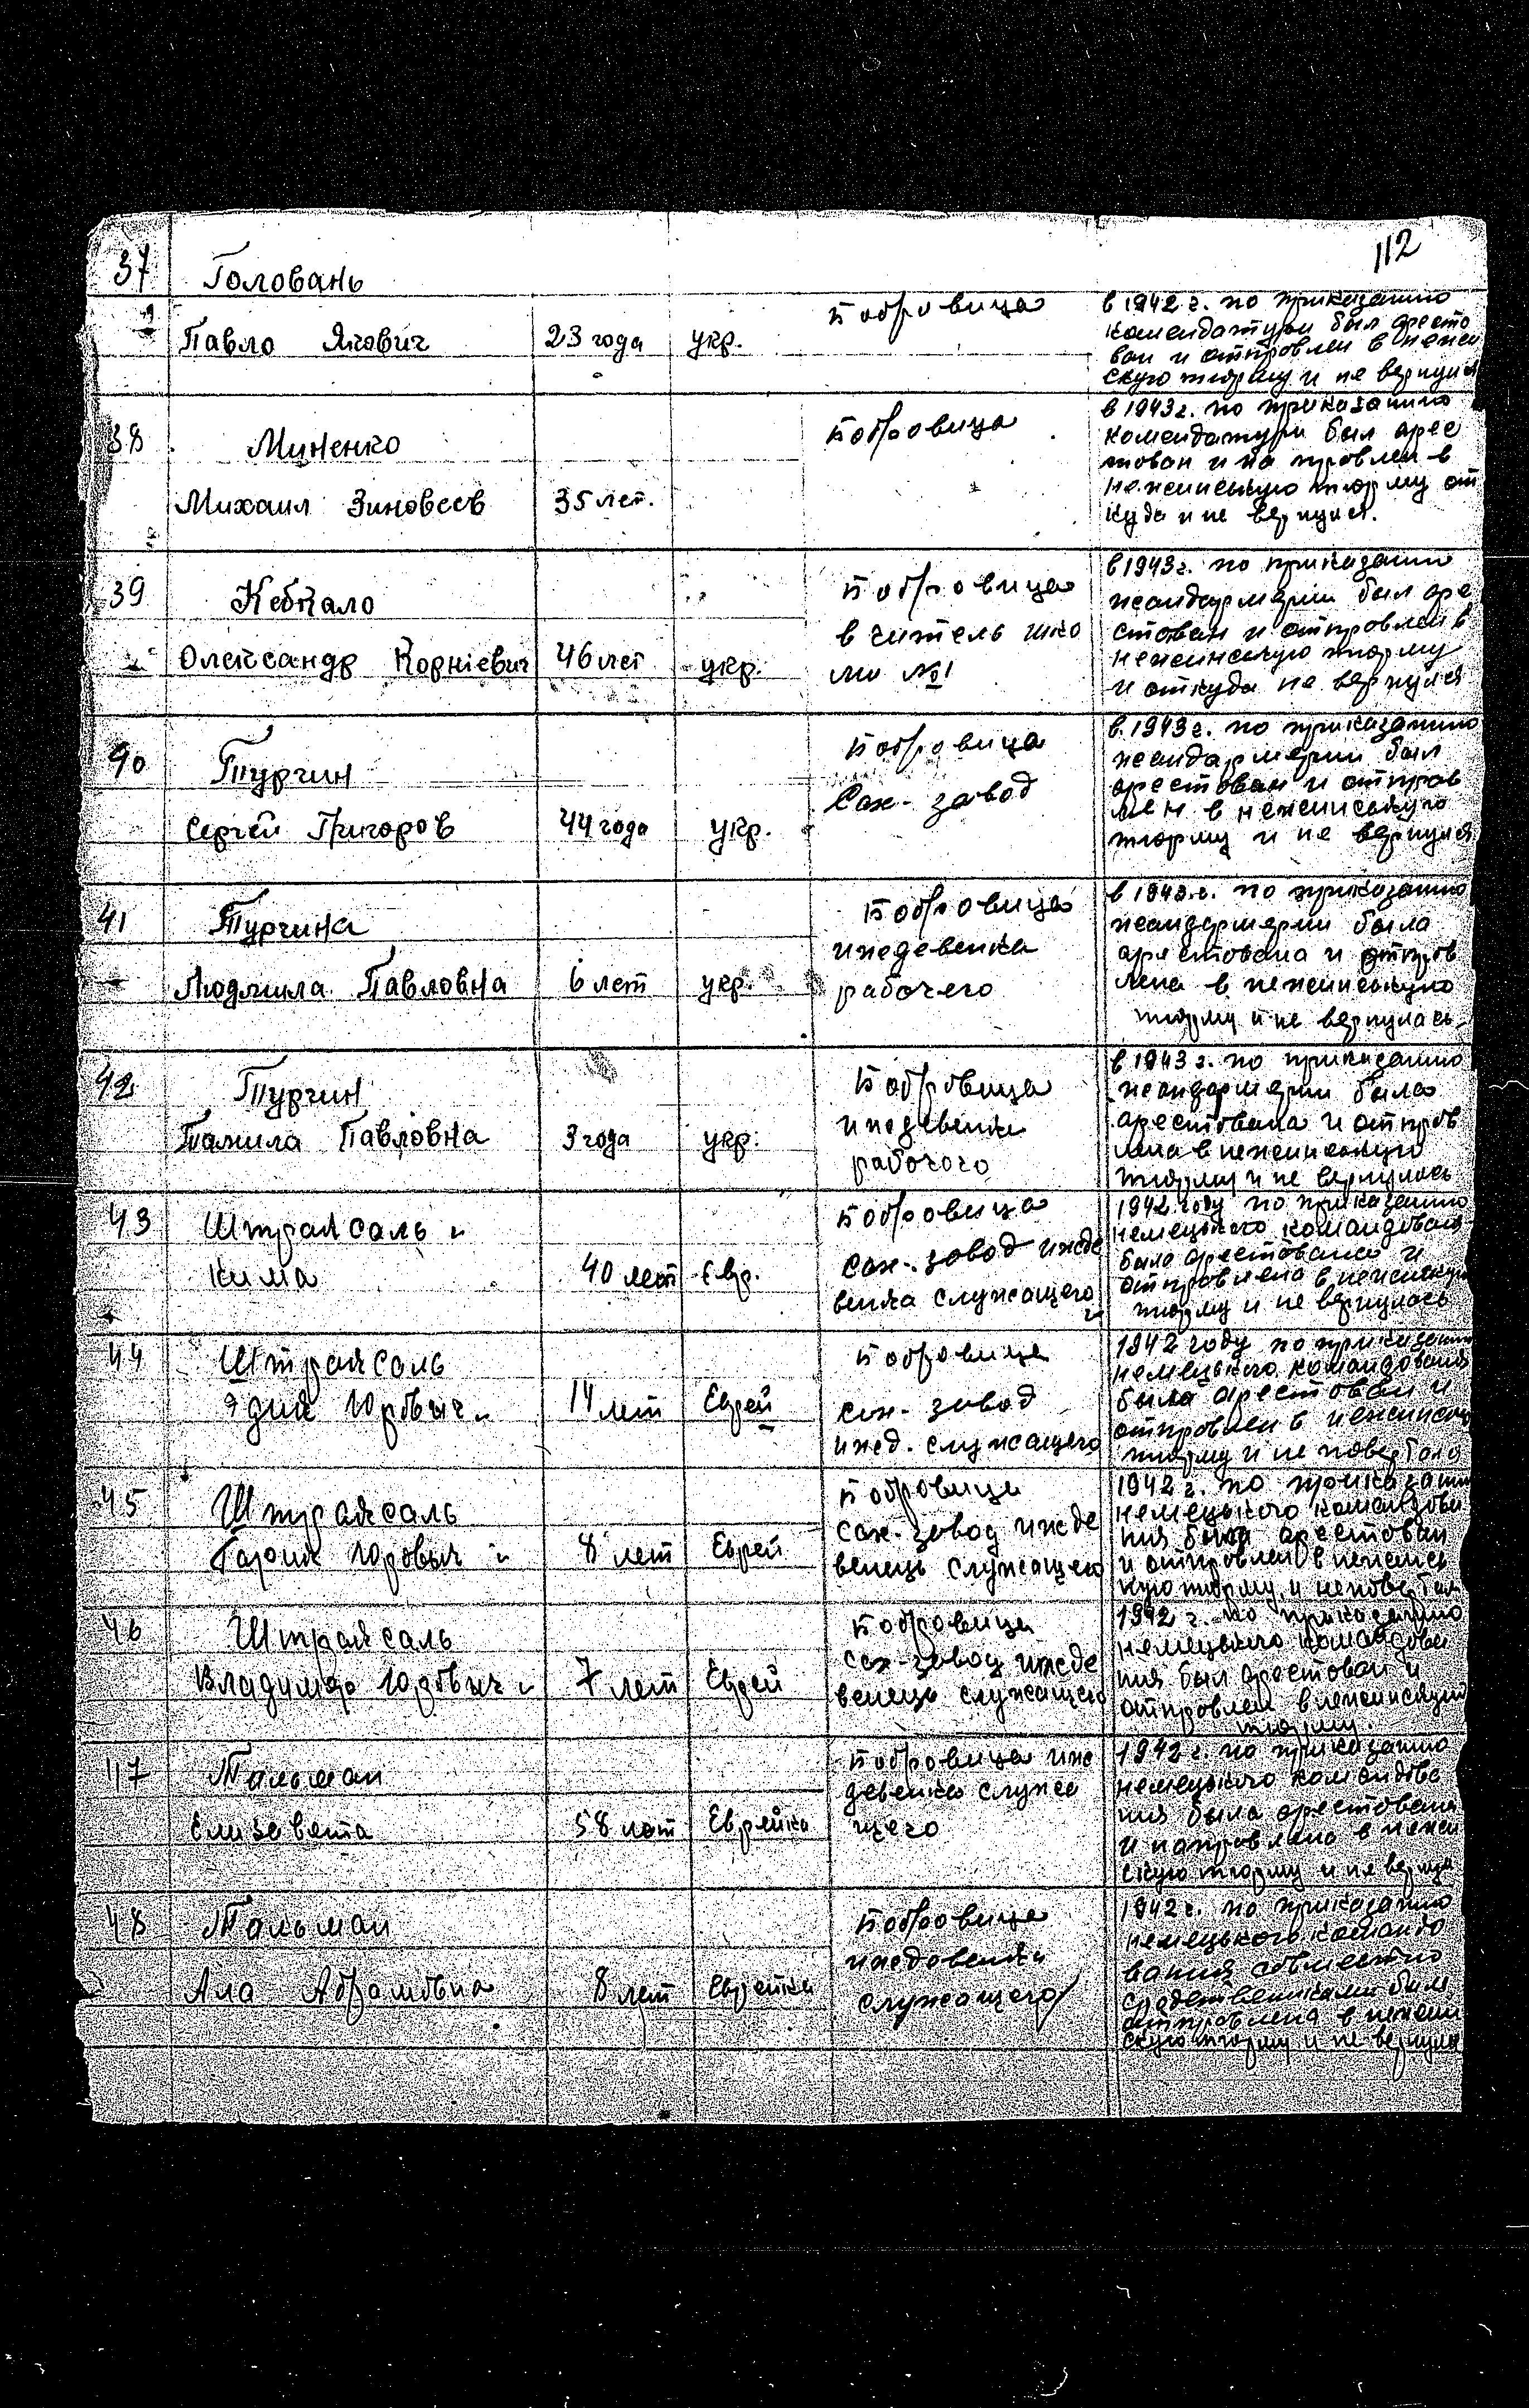 112
37 Головань
Павло Якович 23 года укр. Бобровица
в 1942 г. по приказанию
комендатури был аресто
ван и отправлен в нежин
скую тюрму и не вернулся
38 Миненко
Михаил Зиновеев 35 лет. Бобровица
в 1943 г. по приказанию
комендатури был арес
тован и на правлен в
неженнскую тюрму от
куда и не вернулся.
39 Кебкало
Олександр Корніевич 46 лет укр.
Бобровица
вчитель шко
ли №1
в 1943 г. по приказании
жандармерии был аре
стован и отправлен в
неженнскую тюрму
и откуда не вернулся
40 Турчин
Сергей Григоров 44 года укр.
Бобровица
Сах-завод
в 1943 г. по приказанию
жандармерии был
арестован и отправ
лен в неженискую
тюрму и не вернулся
41 Турчина
Людмила Павловна 6 лет укр.
Бобровица
иждевенка
рабочего
в 1943 г. по приказанию
жандармерии была
арестована и отправ
лена в неженискую
тюрму и не вернулась
42 Турчин
Павловна 3 года укр.
Бобровица
иждевенка
рабочого
в 1943 г. по приказанию
жандармерии была
арестована и отправ
лена в неженискую
тюрму и не вернулась
43 Штраксаль
Кима 40 лет Евр.
Бобровица
Сах-завод ижде
венка служащего
1942 году по приказанию
немецького командован
была арестована и
отправлена в неженискую
тюрму и не вернулась
44 Штраксаль
14 лет Еврей
Бобровица
сах-завод
ижд. служащего
1942 году по приказанию
немецького командования
была арестован и
отправлен в
тюрму и не
45 Штраксаль
8 лет Еврей
Бобровица
сах-завод ижде
венець служащего
1942 г. по приказани
немецького командова
ния был арестован
и отправлен в
кую тюрму и
46 Штраксаль
Владимир 7 лет Еврей
Бобровица
сах-завод ижде
венець служащего
1942 г. по приказанию
немецького командова
ния был арестован и
отправлен в неженискую
тюрму.
47 Тальман
Елизавета 58 лет Еврейка
Бобровица иж
девенка служа
щего
1942 г. по приказанию
немецького командова
ния была арестована
и направлена в нежен
скую тюрму и не верну
48 Тальман
Ала Абрамовна 8 лет Еврейка
Бобровица
иждевенка
служащего
1942 г. по приказанию
немецького командо
вания совместно
с родственниками был
отправлена в нежен
скую тюрму и не вернула